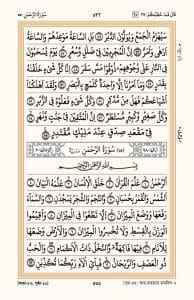 سَيُهْزَمُ الْجَمْعُ وَيُوَلُّونَ الدُّبُرَ ﴿٤٥﴾ بَلِ السَّاعَةُ مَوْعِدُهُمْ وَالسَّاعَةُ
أَدْهٰى وَأَمَرُّ ﴿٤٦﴾ إِنَّ الْمُجْرِمِينَ فِي ضَلٰلٍ وَّسُعُرٍ ﴿٤٧﴾ يَوْمَ يُسْحَبُونَ
فِي النَّارِ عَلٰى وُجُوهِهِمْ ذُوقُوا مَسَّ سَقَرَ ﴿٤٨﴾ إِنَّا كُلَّ شَيْءٍ خَلَقْنٰهُ
بِقَدَرٍ ﴿٤٩﴾ وَمَا أَمْرُنَا إِلَّا وَاحِدَةٌ كَلَمْحٍ بِالْبَصَرِ ﴿٥٠﴾ وَلَقَدْ أَهْلَكْنَا
أَشْيَاعَكُمْ فَهَلْ مِنْ مُّدَّكِرٍ ﴿٥١﴾ وَكُلُّ شَيْءٍ فَعَلُوهُ فِي الزُّبُرِ ﴿٥٢﴾ وَكُلُّ
صَغِيرٍ وَّكَبِيرٍ مُّسْتَطَرٌ ﴿٥٣﴾ إِنَّ الْمُتَّقِينَ فِي جَنّٰتٍ وَّنَهَرٍ ﴿٥٤﴾
فِي مَقْعَدِ صِدْقٍ عِنْدَ مَلِيكٍ مُّقْتَدِرٍ ﴿٥٥﴾
سُورَةُ الرَّحْمٰنِ
بِسْمِ اللهِ الرَّحْمٰنِ الرَّحِيمِ
اَلرَّحْمٰنُ ﴿١﴾ عَلَّمَ الْقُرْاٰنَ ﴿٢﴾ خَلَقَ الْإِنْسَانَ ﴿٣﴾ عَلَّمَهُ الْبَيَانَ ﴿٤﴾
اَلشَّمْسُ وَالْقَمَرُ بِحُسْبَانٍ ﴿٥﴾ وَّالنَّجْمُ وَالشَّجَرُ يَسْجُدٰنِ ﴿٦﴾ وَالسَّمَاءَ
رَفَعَهَا وَوَضَعَ الْمِيزَانَ ﴿٧﴾ أَلَّا تَطْغَوْا فِي الْمِيزَانِ ﴿٨﴾ وَأَقِيمُوا
الْوَزْنَ بِالْقِسْطِ وَلَا تُخْسِرُوا الْمِيزَانَ ﴿٩﴾ وَالْأَرْضَ وَضَعَهَا
لِلْأَنَامِ ﴿١٠﴾ فِيهَا فَاكِهَةٌ وَّالنَّخْلُ ذَاتُ الْأَكْمَامِ ﴿١١﴾ وَالْحَبُّ
ذُو الْعَصْفِ وَالرَّيْحَانُ ﴿١٢﴾ فَبِأَيِّ اٰلَاءِ رَبِّكُمَا تُكَذِّبٰنِ ﴿١٣﴾